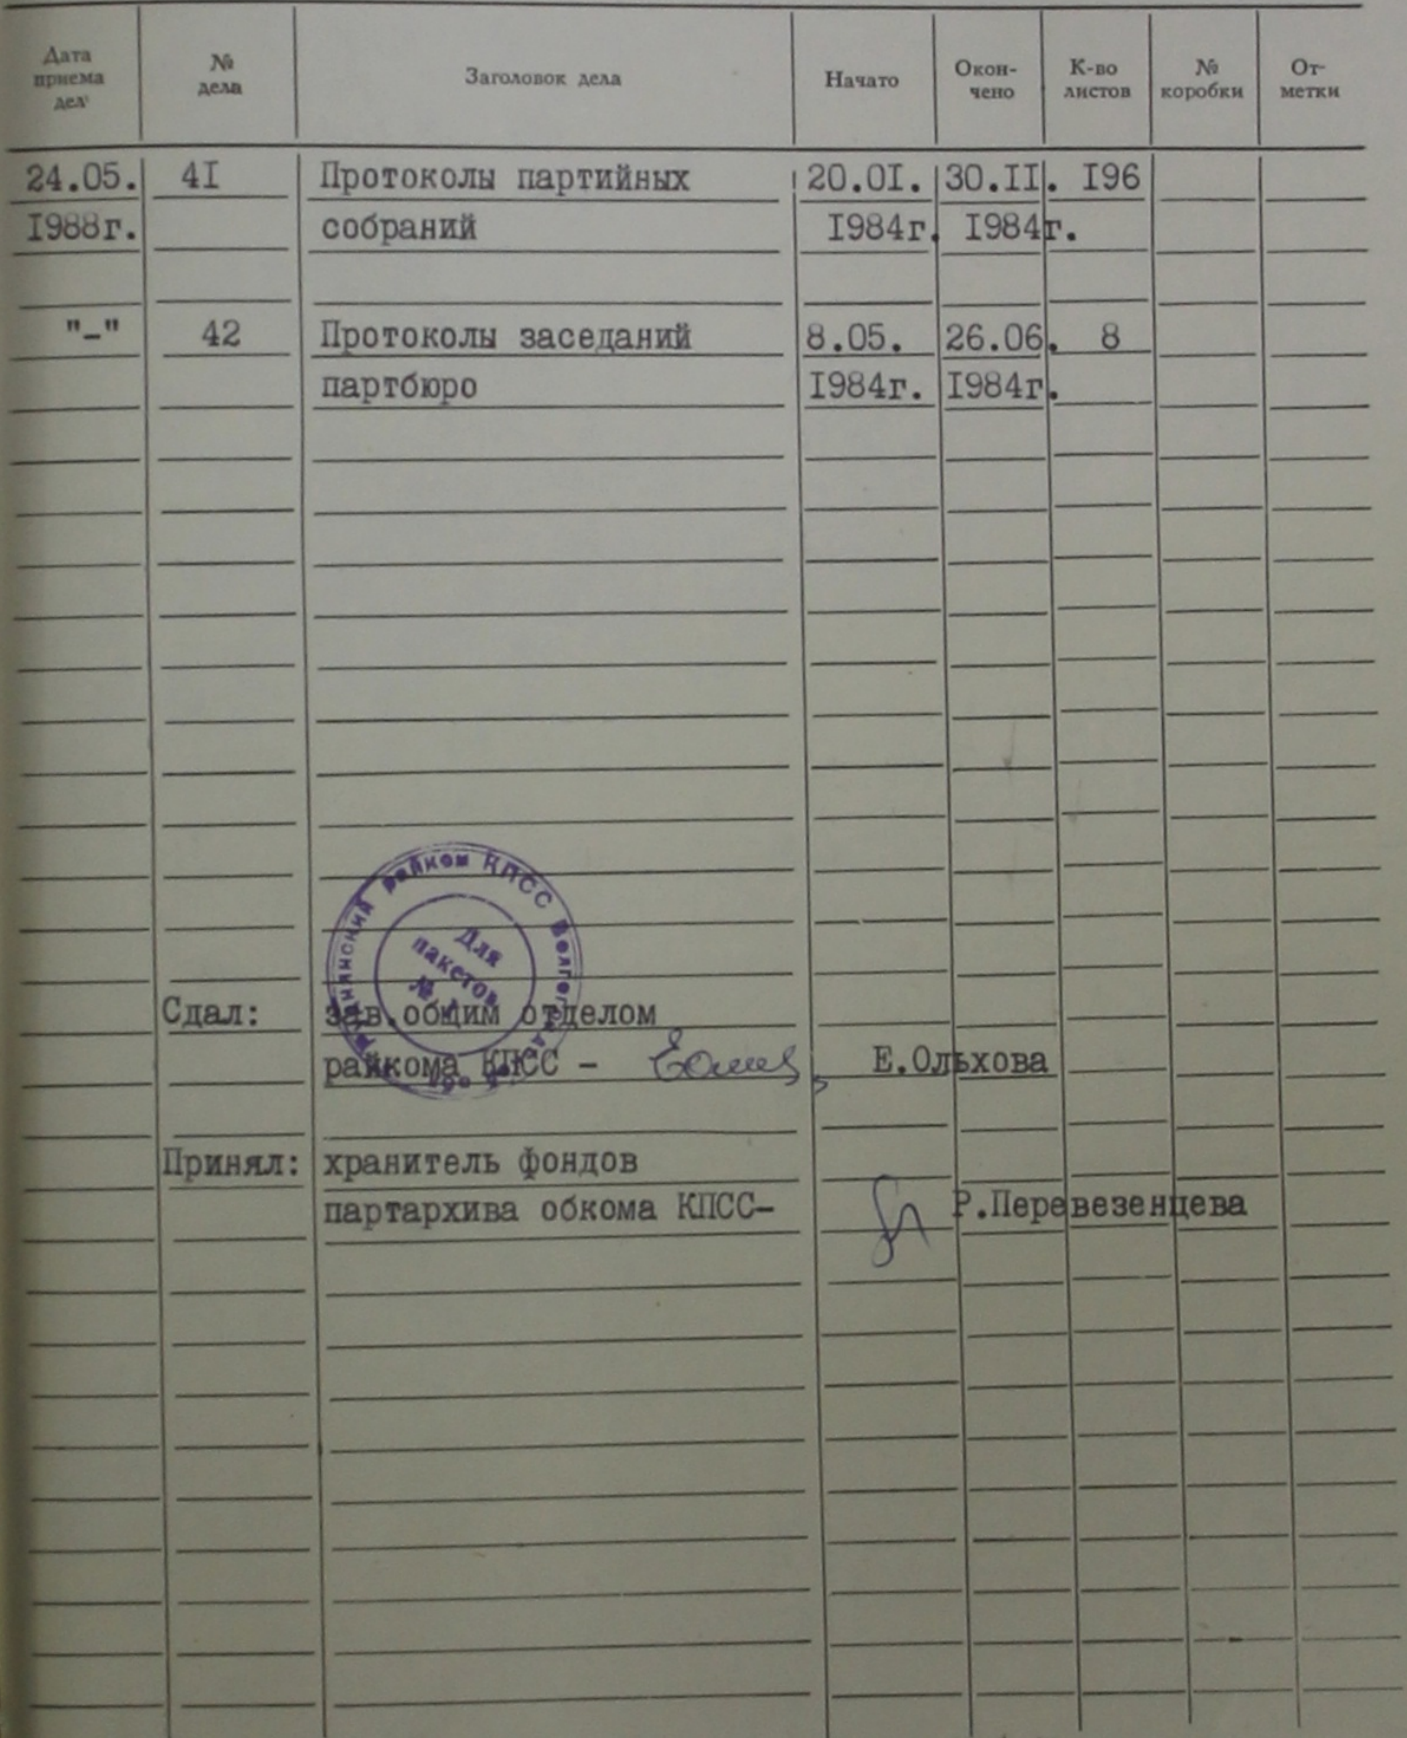 Дата приема дел № дела Заголовок дела Начато Окончено К-во листов № коробки Отметки
24.05. 4I Протоколы партийных 20.0I. 30.II. I96
I988г. собраний I984г. I984г.
"-" 42 Протоколы заседаний 8.05. 26.06. 8
партбюро I984г. I984г.
райком КПСС
Для
пакетов
№
Сдал: зав.общим отделом
райкома КПСС - Е.Ольхова
Принял: хранитель фондов
партархива обкома КПСС- Р.Перевезенцева